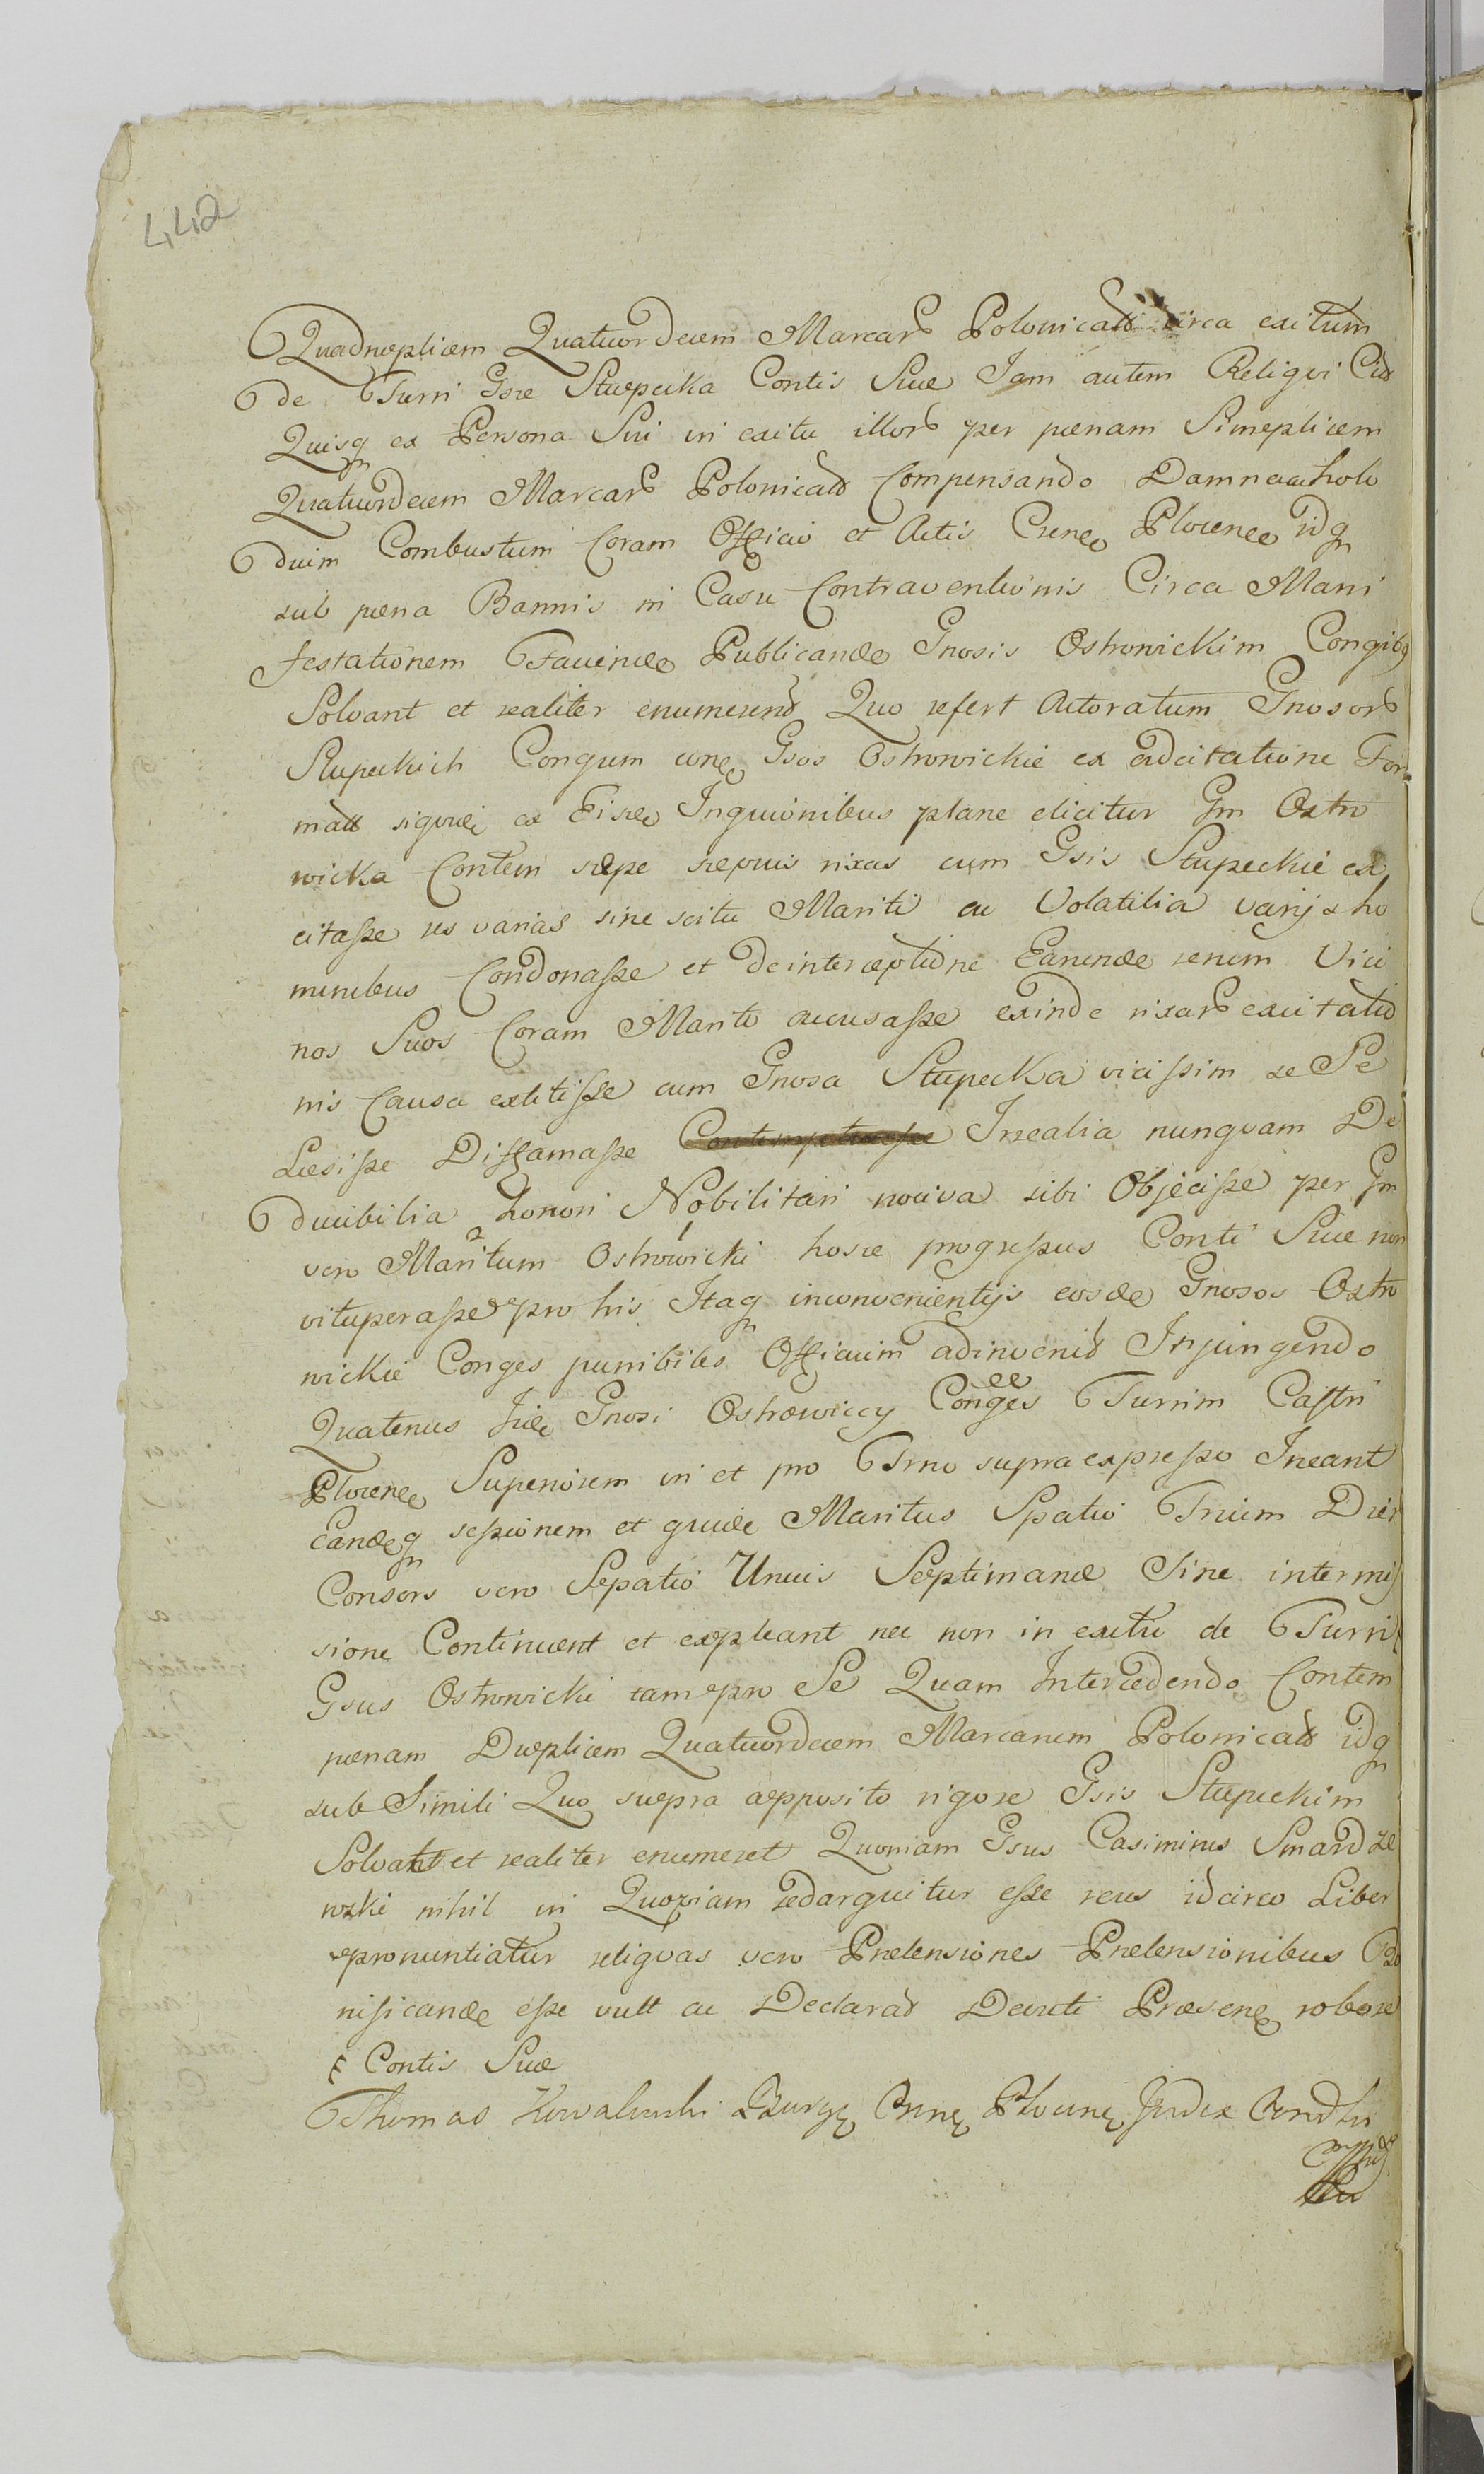 442
Quadruplicem Quatuordecem Marcar Polonical circa exitum
de Turri Gsae Słupecka Contis Suae Jam autem Reliqui Cit
Quisq ex Persona Sui in exitu illor per paenam Simplicem
Quatuordecem Marcar Polonical Compensando Damna holo
duim Combustum Coram Officio et Actis Crene Plocene idq
sub paena Bannis in Casu Contraventionis Circa Mani
festationem Faciende Publicande Gnosis Ostrowickim Congibq
Solvant et realiter enumerent Quo refert Actoratum Gnosor
Słupeckich Congum cone Gsos Ostrowickie ex adcitatione For
mall siquide ex Eisde Inquionibus plane elicitur Gm Ostro
wicka Contem saepe saepius rixas cum Gsis Słupeckie ex
citasse res varias sine scitu Mariti ac Volatilia varijs ho
minibus Condonasse et de interceptione Earunde rerum Vici
nos Suos Coram Marito accusasse exinde rixar excitatio
nis Causa extitisse cum Gnosa Słupecka vicissim se Se
Laesisse Diffamasse Inealia nunquam De
ducibilia honori Nobilitari nociva sibi Objecisse per Gm
vero Maritum Ostrowicki hosce progressus Conti Suae non
vituperasse pro his Itaq inconvenientijs eosde Gnosos Ostro
wickie Conges punibiles Officium adinvenit Injungendo
Quatenus Iide Gnosi Ostrowiccy Conges Turrim Castri
Plocene Superiorem in et pro Trno supra expresso Ineant
Eandeq sessionem et quide Maritus Spatio Trium Dier
Consors vero Spatio Unius Septimanae Sine intermis
sione Continuent et expleant nec non in exitu de Turri
Gsus Ostrowicki tam pro Se Quam Intercedendo Contem
paenam Duplicem Quatuordecem Marcarum Polonical idq
sub Simili Quo supra apposito rigore Gsis Słupeckim
Solvat et realiter enumeret Quoniam Gsus Casimirus Smardze
wski nihil in Quopiam redarguitur esse reus idcirco Liber
pronuntiatur reliquas vero Praetensiones Praetensionibus Bo
nificande esse vult ac Declarat Decreti Praesene robore
Contis Suae
Thomas Kowalewski Burge Crene Plocene Judex